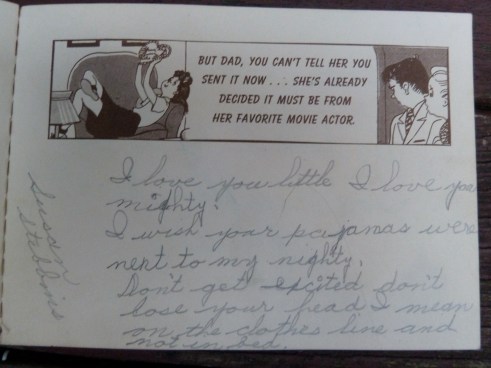 BUT DAD, YOU CAN'T TELL HER YOU
SENT IT NOW . . . SHE'S ALREADY
DECIDED IT MUST BE FROM
HER FAVORITE MOVIE ACTOR.
I love you little I love you
mighty.
I wish your pajamas were
next to my nighty.
Don't get excited don't
lose your head I mean
on the clothes line and
not in bed.
Susan
Stebbins